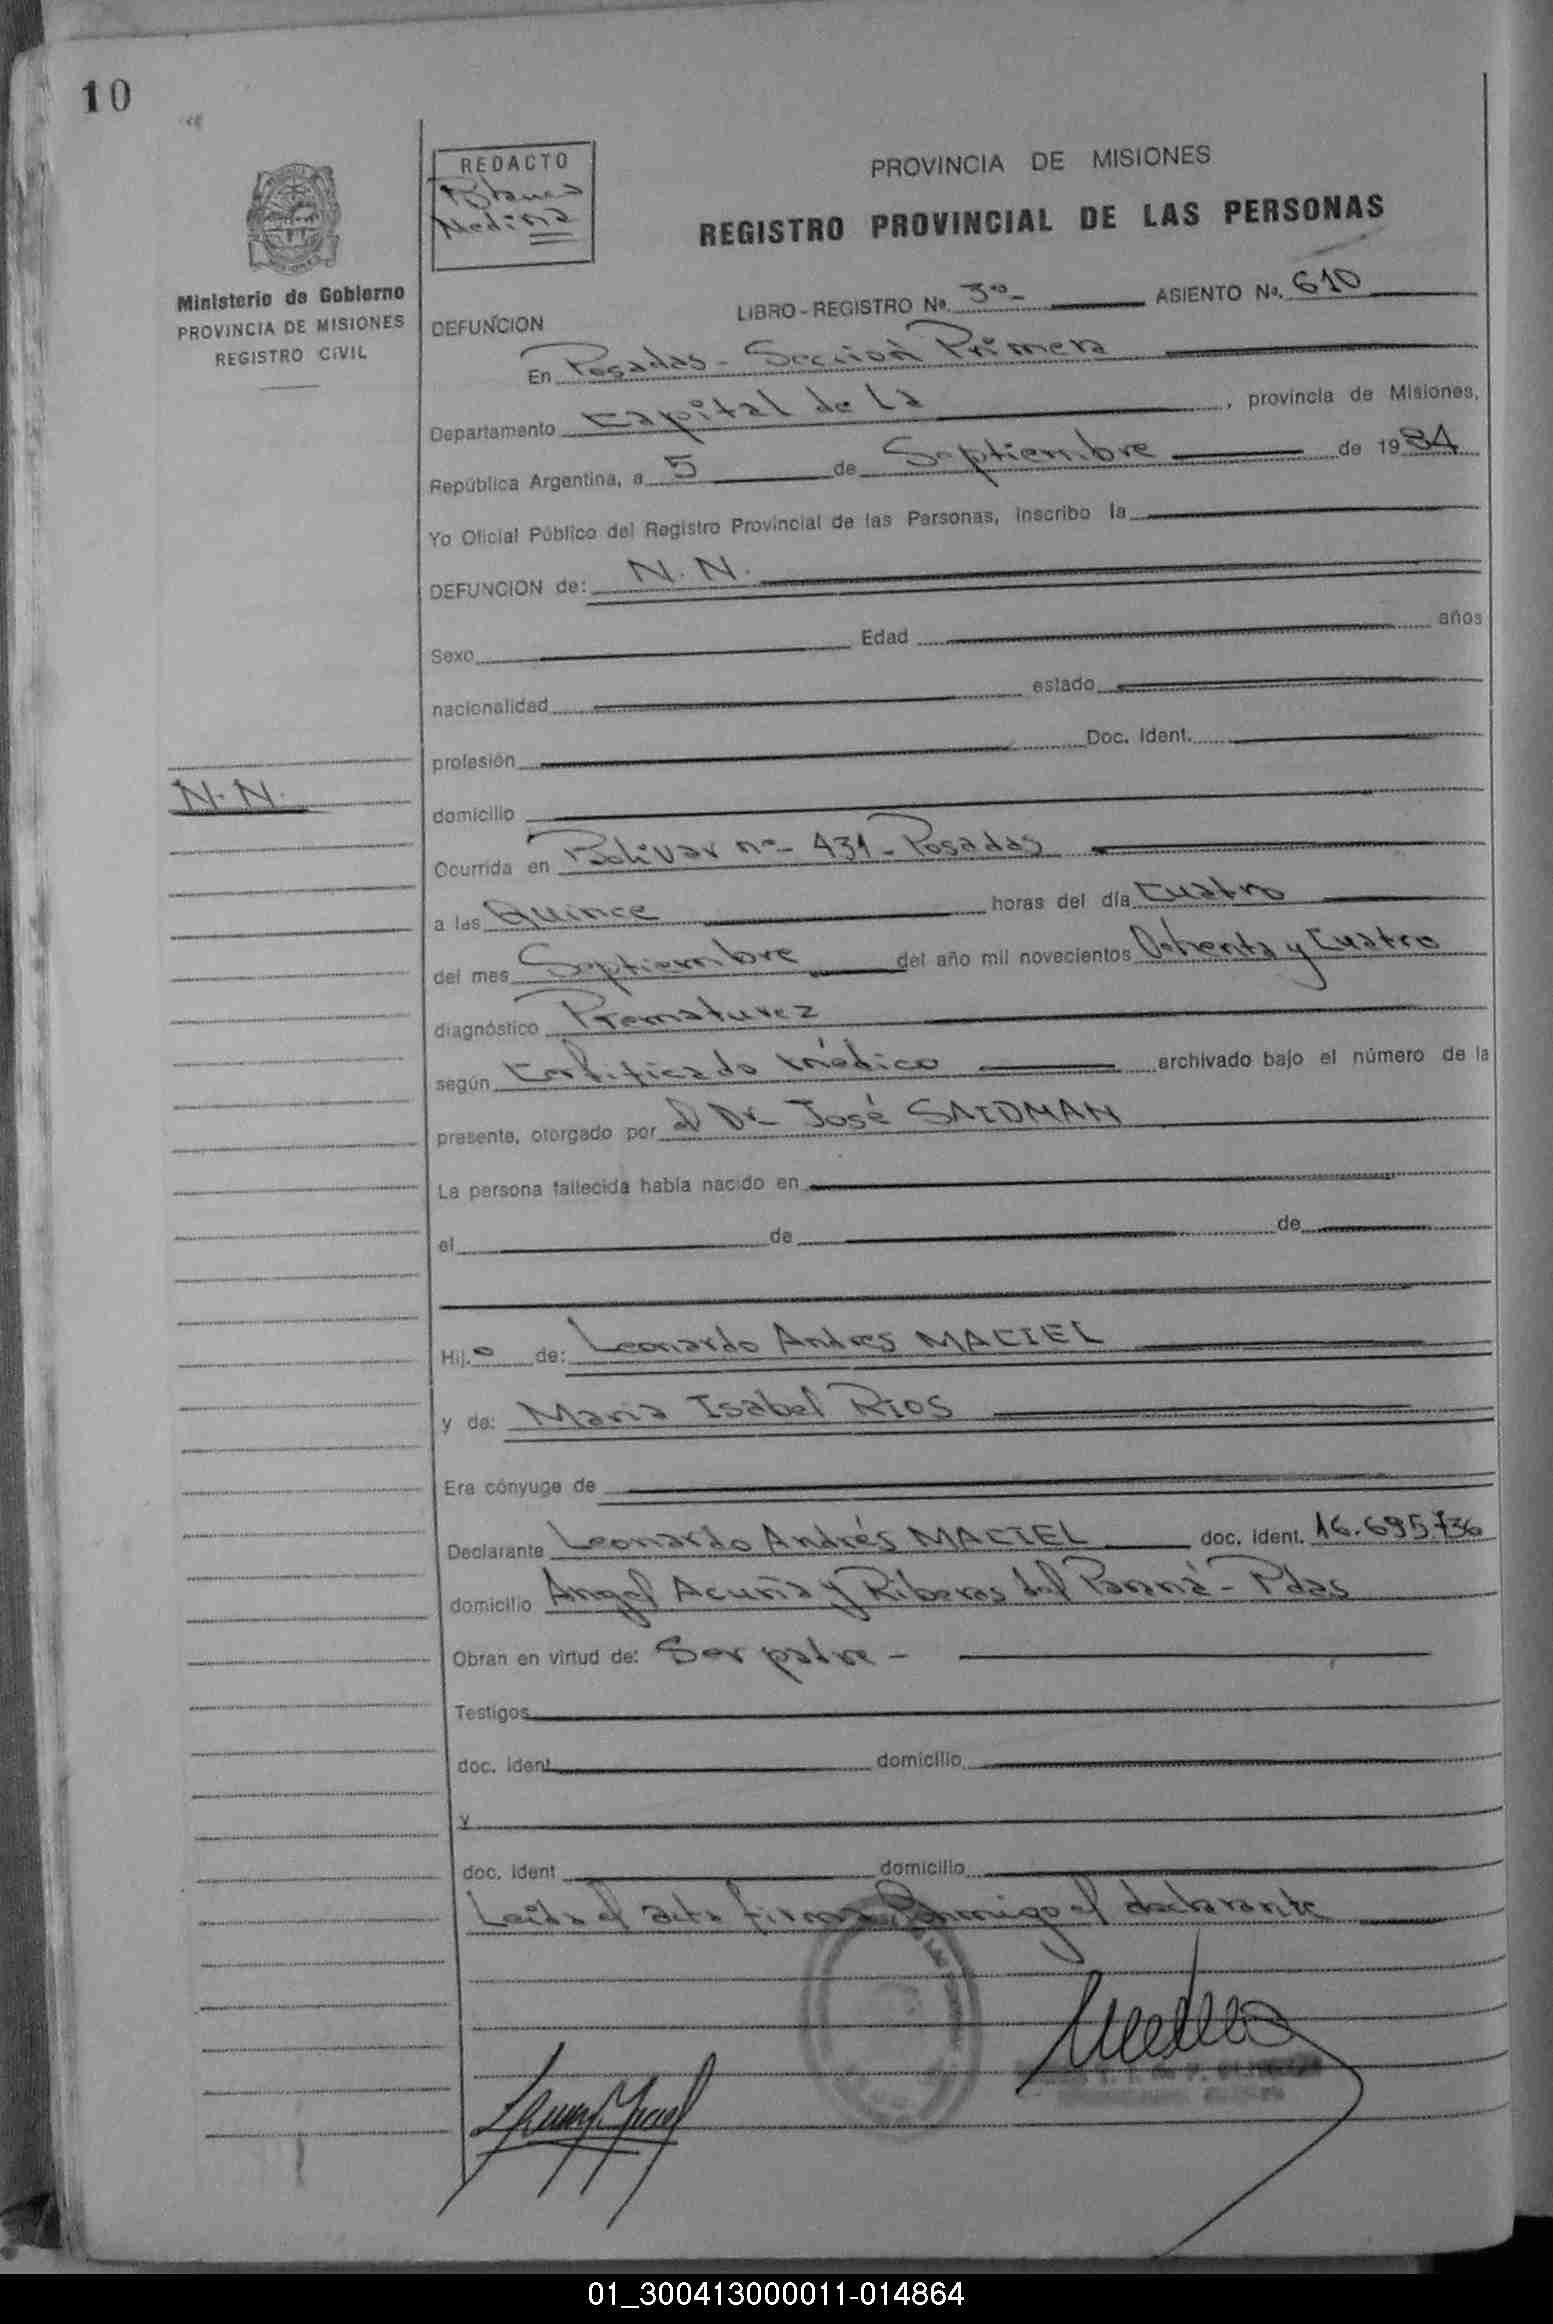 10
REDACTO
Blanca
Medina
PROVINCIA DE MISIONES
REGISTRO PROVINCIAL DE LAS PERSONAS
Ministerio de Gobierno
PROVINCIA DE MISIONES
REGISTRO CIVIL
LIBRO - REGISTRO No. 3º - ASIENTO No. 610
DEFUNCION
En Posadas - Sección Primera
Departamento Capital de la , provincia de Misiones,
República Argentina, a 5 de Septiembre de 1984
Yo Oficial Público del Registro Provincial de las Personas, inscribo la
DEFUNCION de: N. N.
Sexo Edad años
nacionalidad estado
profesión Doc. Ident.
N. N.
domicilio
Ocurrida en Bolivar nº - 431 - Posadas
a las Quince horas del día Cuatro
del mes Septiembre del año mil novecientos Ochenta y Cuatro
diagnóstico Prematurez
según Certificado médico archivado bajo el número de la
presente, otorgado por el Dr. José SAIDMAN
La persona fallecida había nacido en
el de de
Hij.o de: Leonardo Andres MACIEL
y de: Maria Isabel RIOS
Era cónyuge de
Declarante Leonardo Andrés MACIEL doc. ident. 16.695.736
domicilio Angel Acuña y Riberas del Paraná - Pdas
Obran en virtud de: Ser padre -
Testigos
doc. ident domicilio
y
doc. ident domicilio
Leida el acta firma conmigo el declarante
01_300413000011-014864